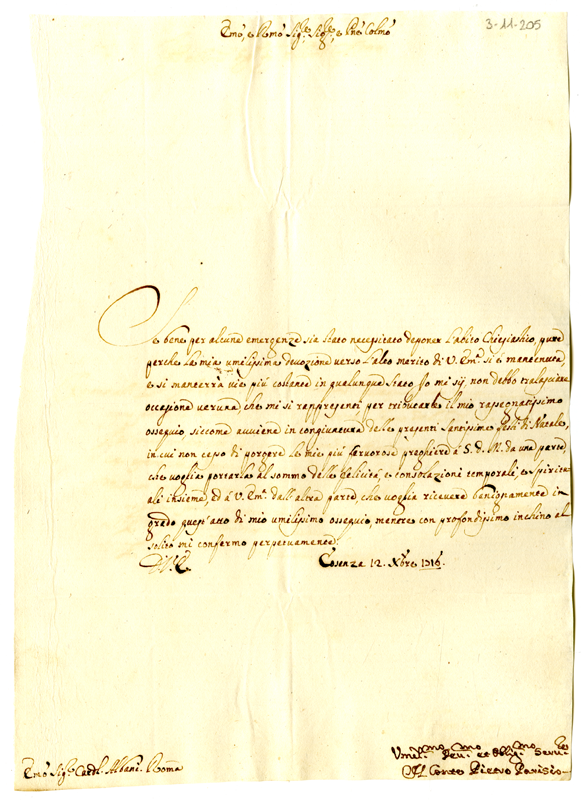 3-11-205
Emo, e Rmo Sigre Sigre, e Pne Colmo
Se bene per alcune emergenze sia stato necessitato deponer l'abito Chiesiastico, pure
perche la mia umilissima devozione verso l'alto merito di V. Emza si è mantenuta
e si manterrà vie più costante in qualunque stato Jo mi sij, non debbo tralasciare
occasione veruna che mi si rappresenti per tributarle il mio rassegnatissimo
ossequio, siccome avviene in congiuntura delle presenti Santissime feste di Natale,
in cui non cesso di porgere le mie più fervorose preghiere à S. D. M. da una parte,
che voglia portarla al sommo delle felicità, e consolazioni temporali, e spiritu-
ali insieme, ed à V. Emza dall'altra parte, che voglia ricevere benignamente in
grado quest'atto di mio umilissimo ossequio, mentre con profondissimo inchino al
solito mi confermo perpetuamente.
D. V. E.
Cosenza 12. Xbre 1716.
Umilmo Devmo et Obligmo Servre
Emo Sigre Cardl Albani. Roma
Il Conte Pietro Parisio